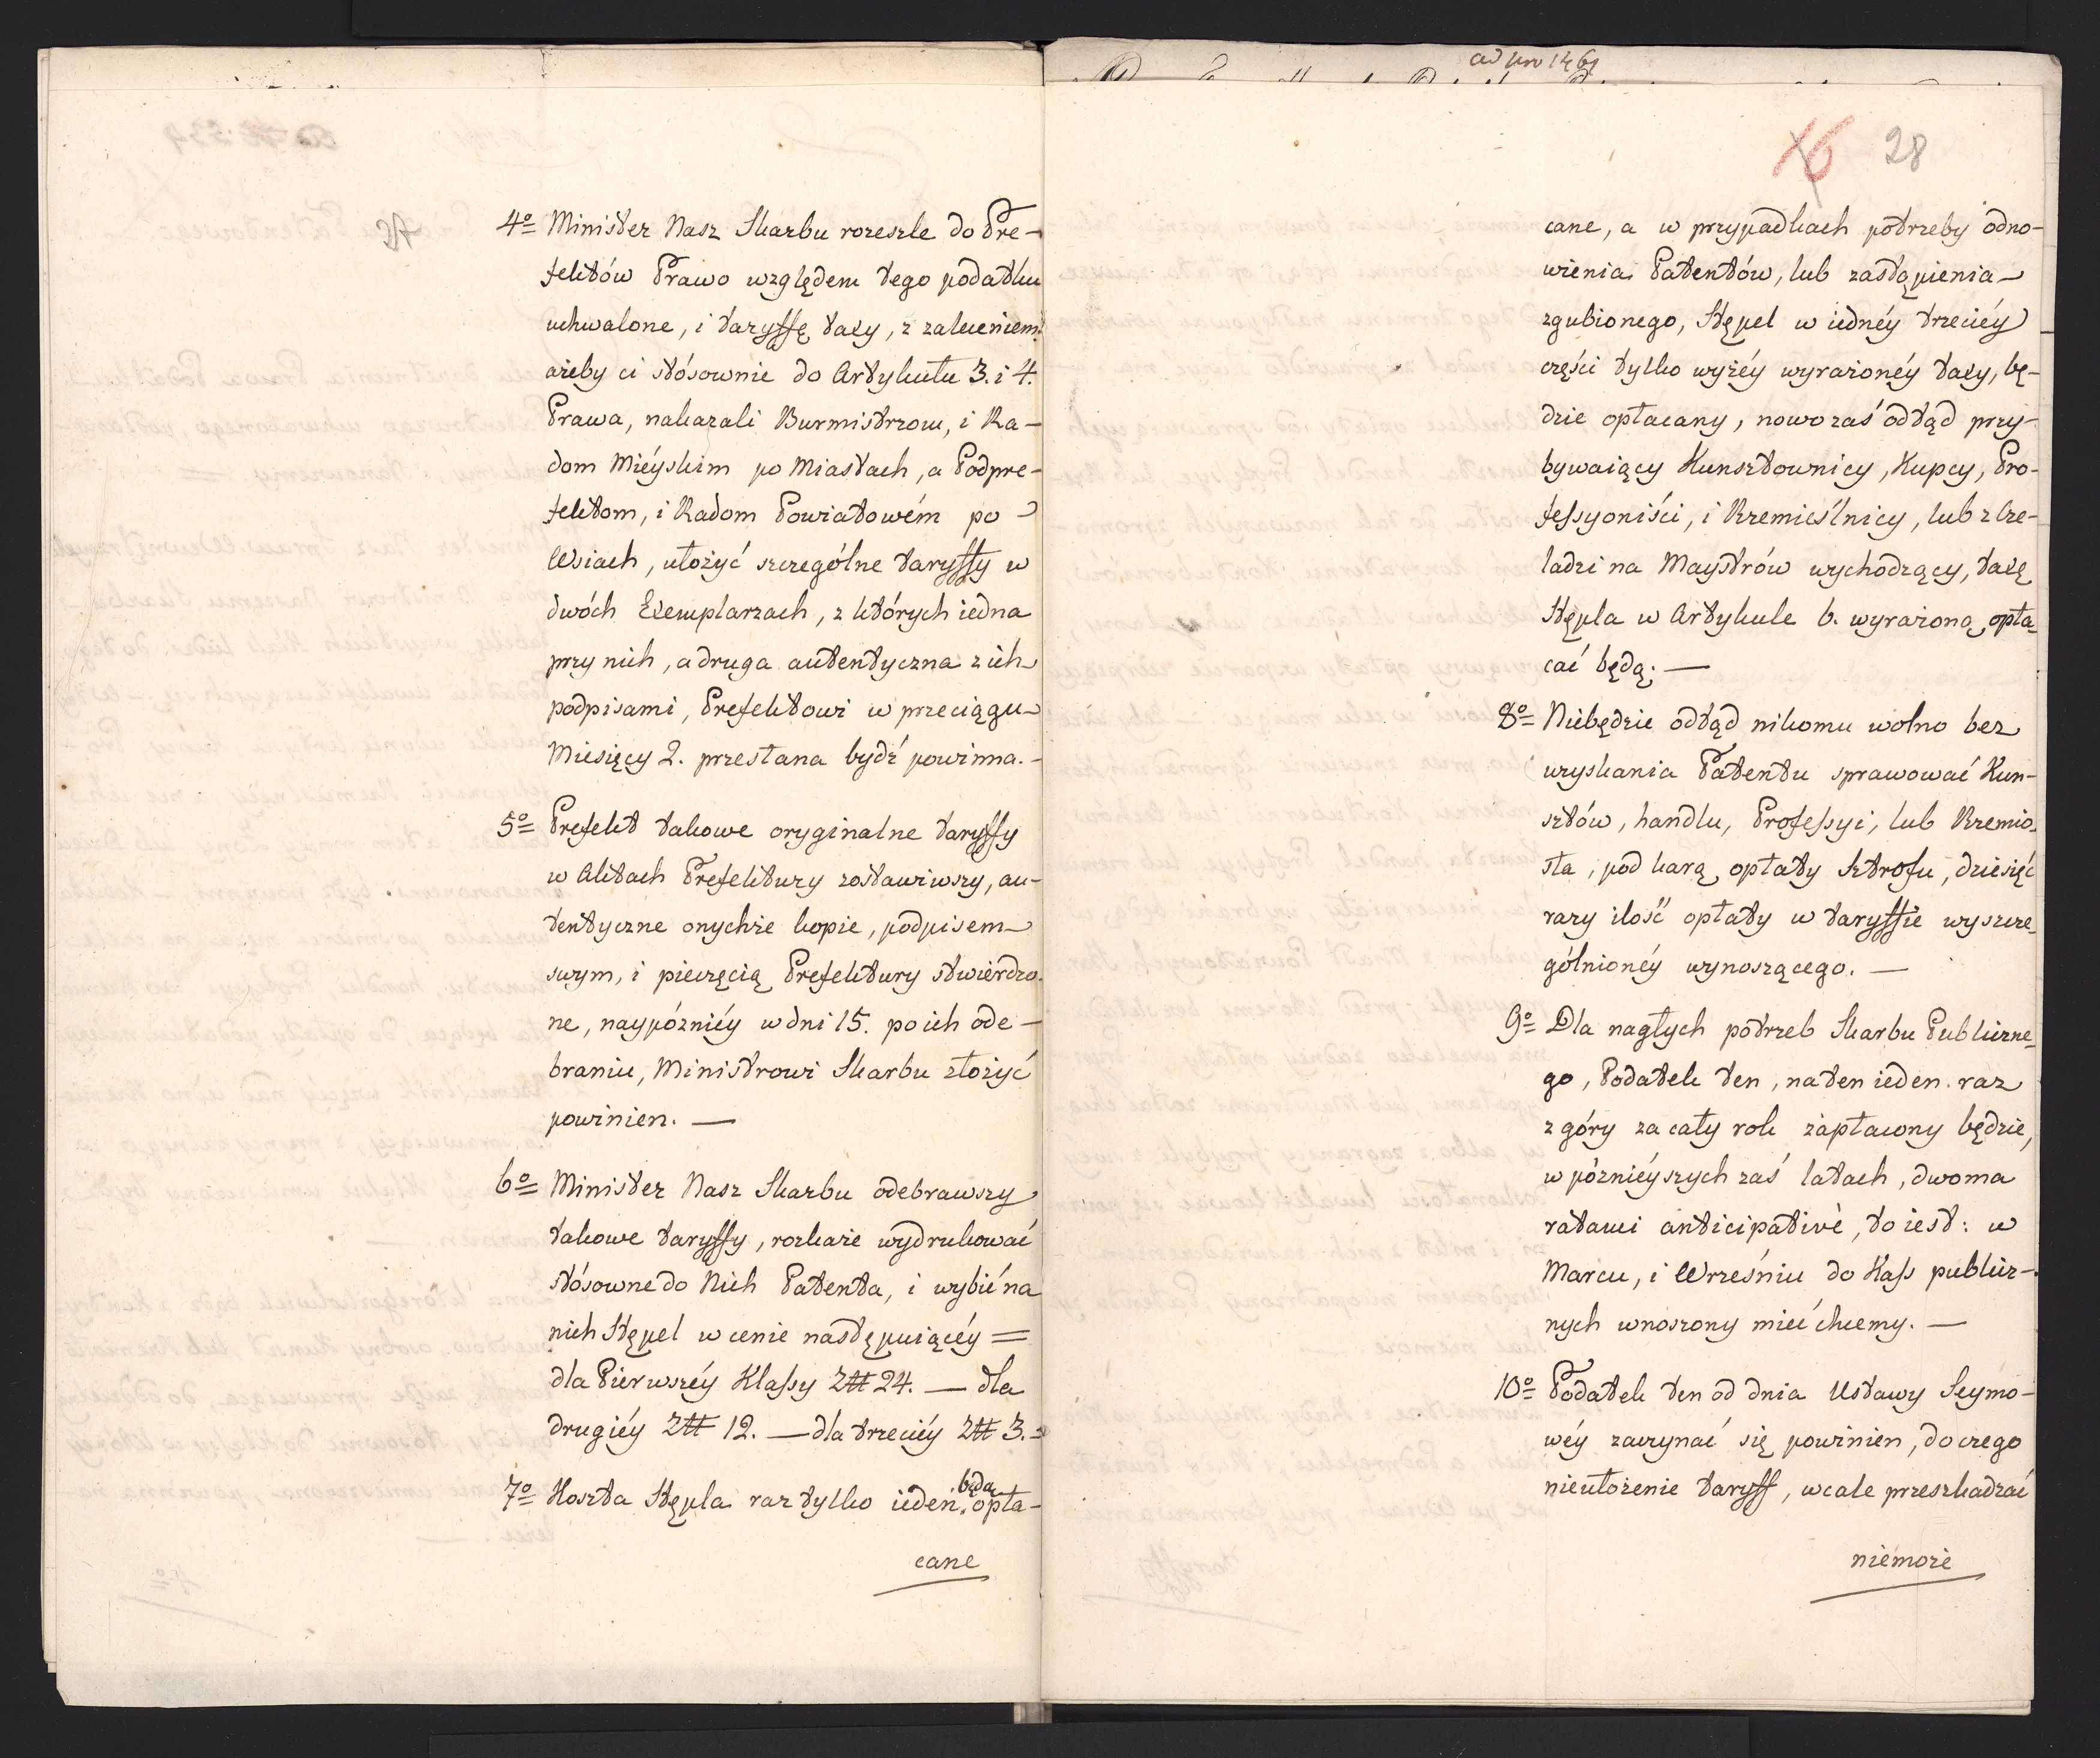 27
4º Minister Nasz Skarbu roześle do Pre-
fektów Prawo względem tego podatku
uchwalone, i taryffę taxy, z zaleceniem
ażeby ci stósownie do Artykułu 3. i 4.
Prawa, nakazali Burmistrzom, i Ra-
dom Miéyskim po Miastach, a Podpre-
fektom, i Radom Powiatowém po
Wsiach, ułożyć szczególne taryffy w
dwóch Exemplarzach, z których iedna
przy nich, a druga autentyczna z ich
podpisami, Prefektowi w przeciągu
Miesięcy 2. przesłana bydź powinna.-
5º Prefekt takowe oryginalne taryffy
w Aktach Prefektury zostawiwszy, au-
tentyczne onychże kopie, podpisem
swym, i pieczęcią Prefektury stwierdzo-
ne, naypózniéy w dni 15. po ich ode-
braniu, Ministrowi Skarbu złożyć
powinien. —
6º Minister Nasz Skarbu odebrawszy
takowe taryffy, rozkaże wydrukować
stósowne do Nich Patenta, i wybić na
nich Stępel w cenie następuiącéy =
dla Pierwszéy Klassy Ztt 24. — dla
drugiéy Ztt 12. — dla trzeciéy Ztt 3.=
7º Koszta Stępla raz tylko ieden, będą opła-
cane
ad Nro 1461
16 28
cane, a w przypadkach potrzeby odno-
wienia Patentów, lub zastąpienia
zgubionego, Stępel w iednéy trzeciéy
części tylko wyżéy wyrażonéy taxy, bę-
dzie opłacany, nowo zaś odtąd przy-
bywaiący Kunsztownicy, Kupcy, Pro-
fessyoniści, i Rzemieślnicy, lub z Cze-
ladzi na Maystrów wychodzący, taxę
Stępla w Artykule 6. wyrażoną opła-
cać będą. —
8º Niebędzie odtąd nikomu wolno bez
uzyskania Patentu sprawować Kun-
sztów, handlu, Professyi, lub Rzemio-
sła, pod karą opłaty sztrofu, dziesięć
razy ilość opłaty w taryffie wyszcze-
gólnionéy wynoszącego. —
9º Dla nagłych potrzeb Skarbu Publiczne-
go, Podatek ten, na ten ieden raz
z góry za cały rok zapłacony będzie,
w pózniéyszych zaś latach, dwoma
ratami anticipativè, to iest: w
Marcu, i Wrześniu do Kass publicz-
nych wnoszony mieć chcemy. —
10º Podatek ten od dnia Ustawy Seymo-
wéy zaczynać się powinien, do czego
nieułożenie taryff, wcale przeszkadzać
niemoże